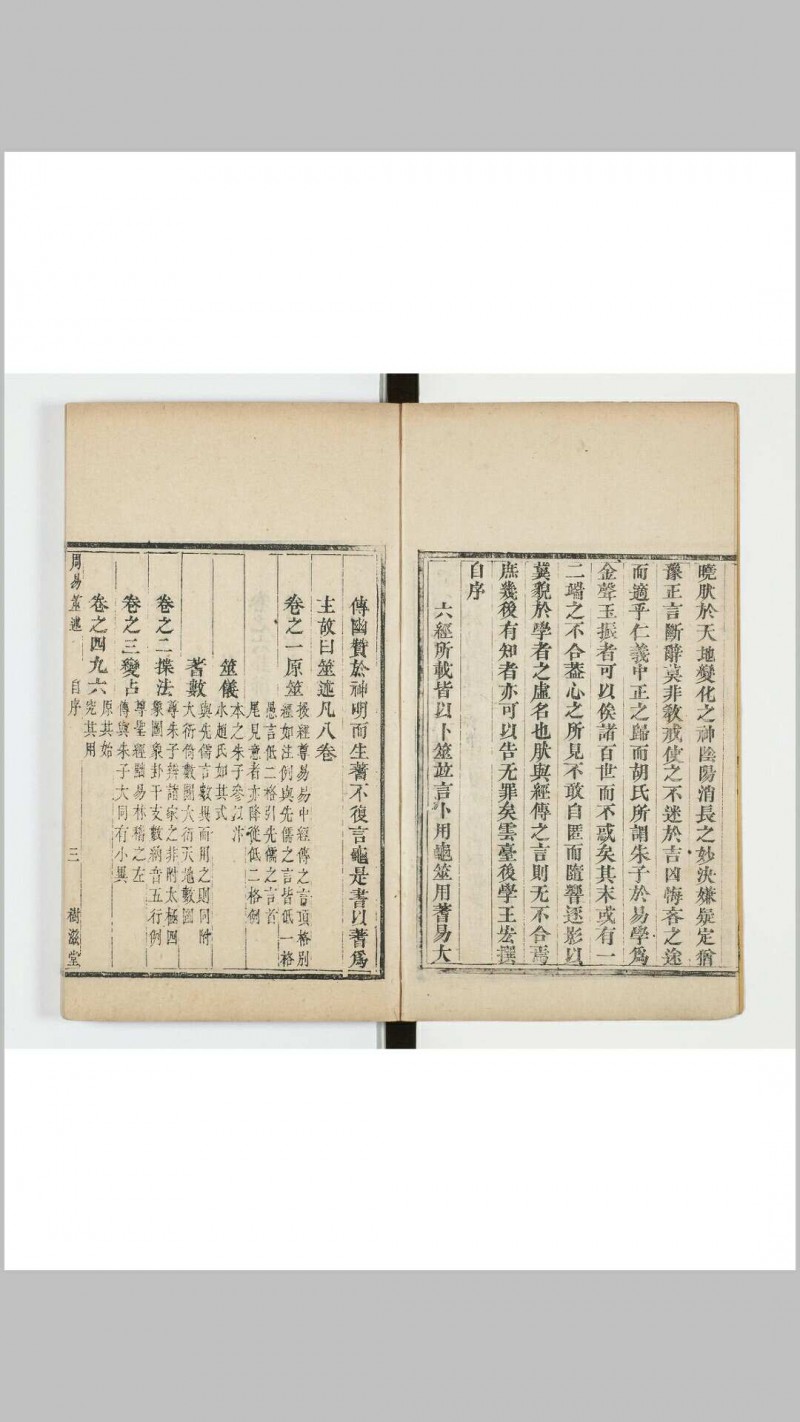 曉肰於天地變化之神陰陽消長之妙決嫌疑定猶
豫正言斷辭莫非敎戒使之不迷於吉凶悔吝之途
而適乎仁義中正之歸而胡氏所謂朱子於易學爲
金聲玉振者可以俟諸百世而不惑矣其末或有一
二端之不合葢心之所見不敢自匿而隨聲逐影以
冀貌於學者之虛名也肰與經傳之言則无不合焉
庶幾後有知者亦可以告无罪矣雲臺後學王宏撰
自序
六經所載皆以卜筮竝言卜用龜筮用蓍易大
傳幽贊於神明而生蓍不復言龜是書以蓍爲
主故曰筮述凡八卷
卷之一原筮
援經尊易易中經傳之言頂格別
經如注例與先儒之言皆低一格
愚言低二格引先儒之言首
尾見意者亦降從低二格例
筮儀
本之朱子參以汴
水趙氏如其式
蓍數
與先儒言數異而用之則同附
大衍舊數圖大衍天地數圖
卷之二揲法
尊朱子辨諸家之非附太極四
象圖象卦干支數納音五行例
卷之三變占
尊聖經黜易林稽之左
傳與朱子大同有小異
卷之四九六
原其始
究其用
周易筮述 自序 三 樹滋堂